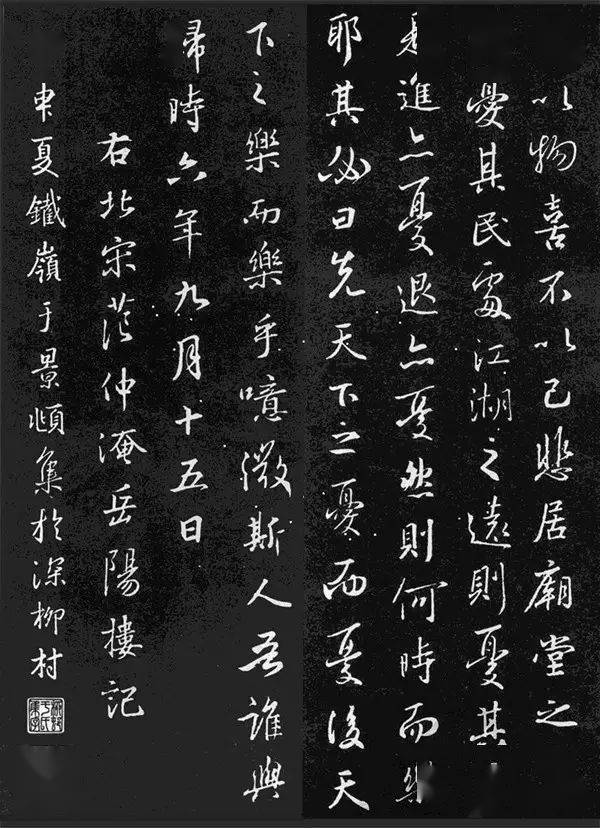 以物喜不以己悲居廟堂之
憂其民處江湖之遠則憂其
是進亦憂退亦憂然則何時而樂
耶其必曰先天下之憂而憂後天
下之樂而樂乎噫微斯人吾誰與
歸時六年九月十五日
右北宋范仲淹岳陽樓記
申夏鐵嶺于景頫集於深柳村